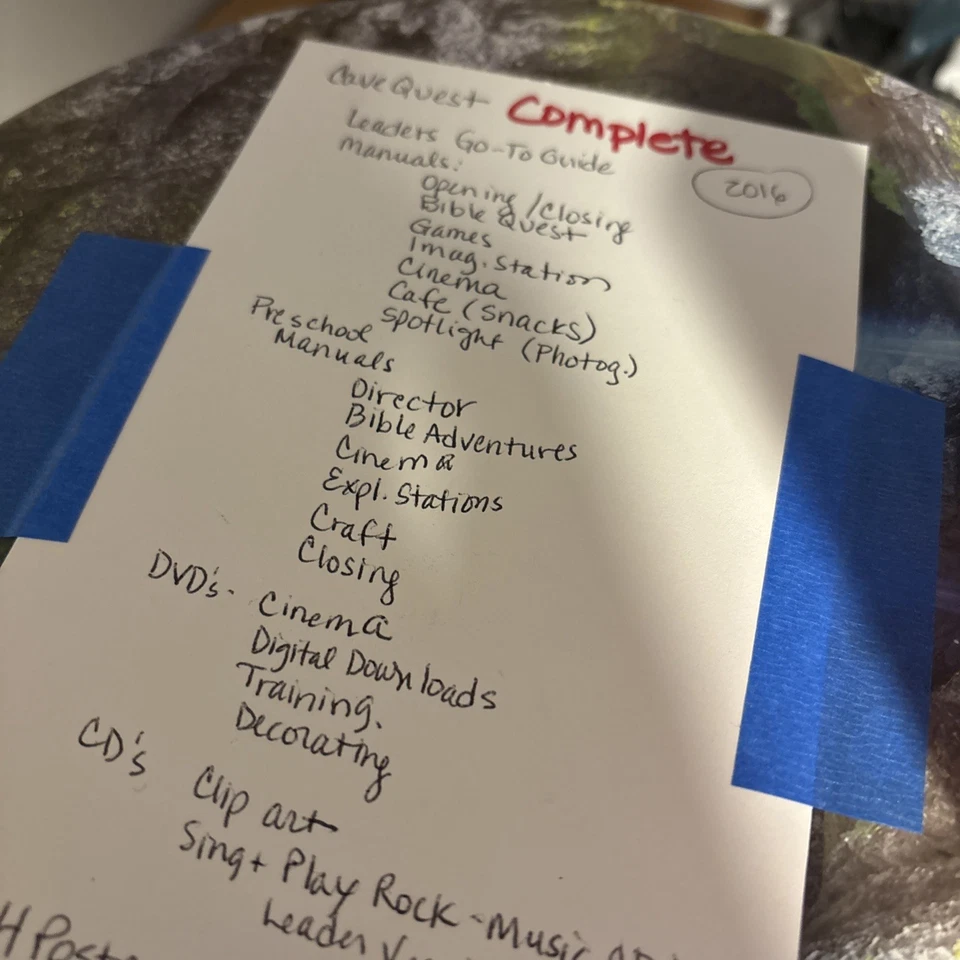 Cave Quest Complete
2016
Leaders Go-To Guide
Manuals:
Opening/Closing
Bible Quest
Games
Imag. Station
Cinema
Cafe (Snacks)
Spotlight (Photog.)
Preschool
Manuals
Director
Bible Adventures
Cinema
Expl. Stations
Craft
Closing
DVD's - Cinema
Digital Downloads
Training.
Decorating
CD's Clip art
Sing + Play Rock - Music
Leader